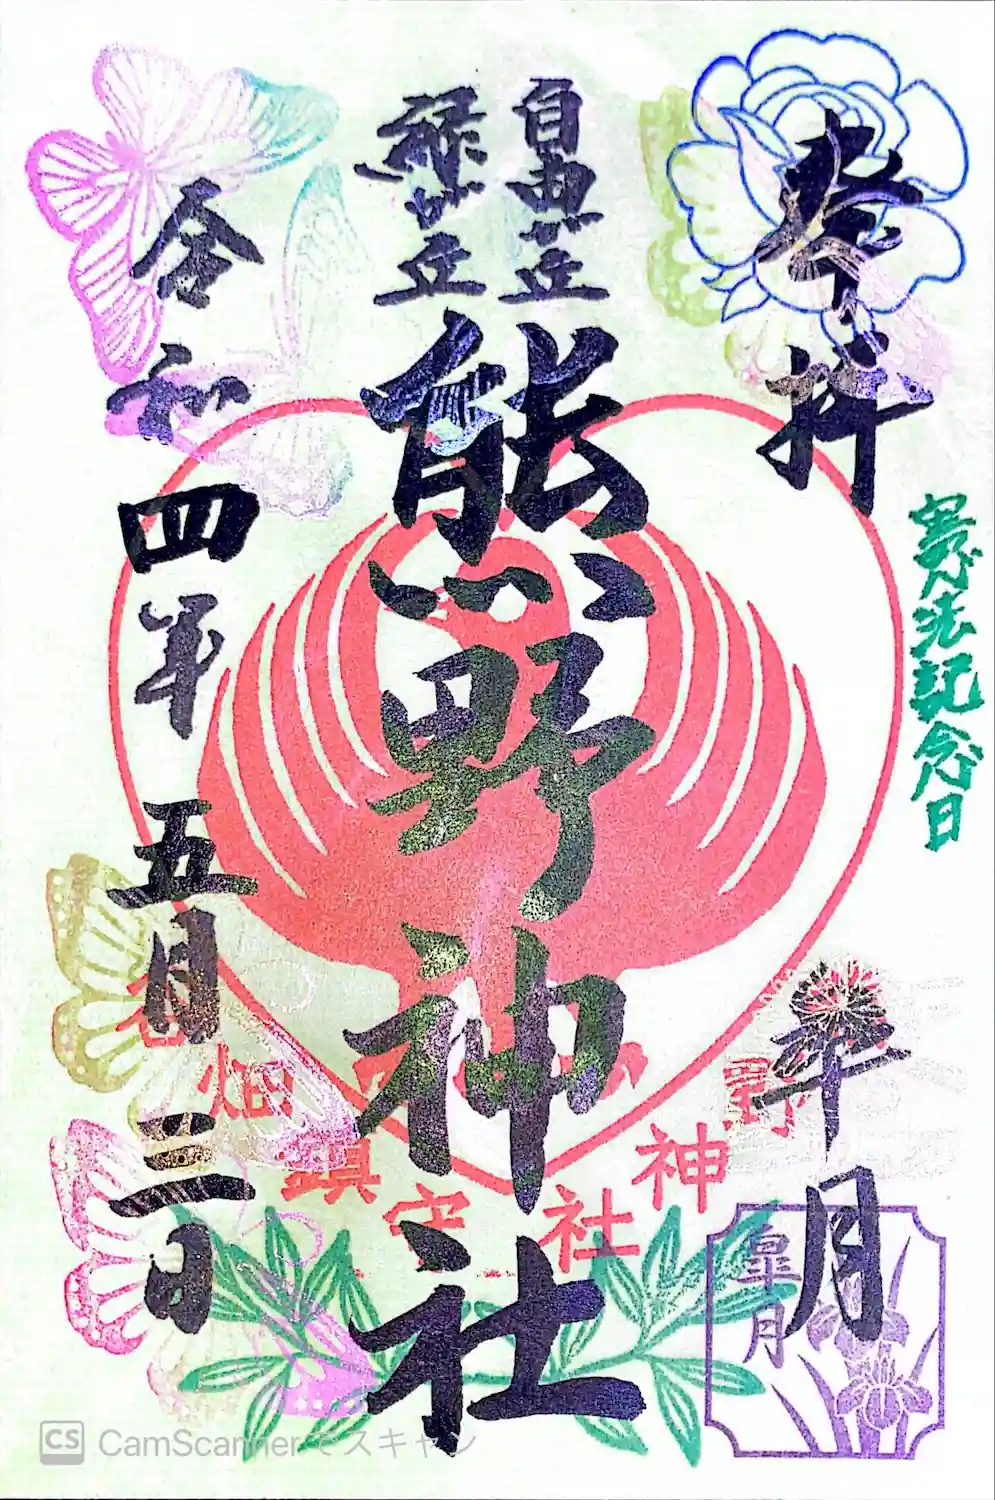 奉拝
憲法記念日
皐月
皐月
自由が丘
緑が丘
熊野神社
令和四年五月三日
熊野神社
畑鎮守
CamScannerでスキャン